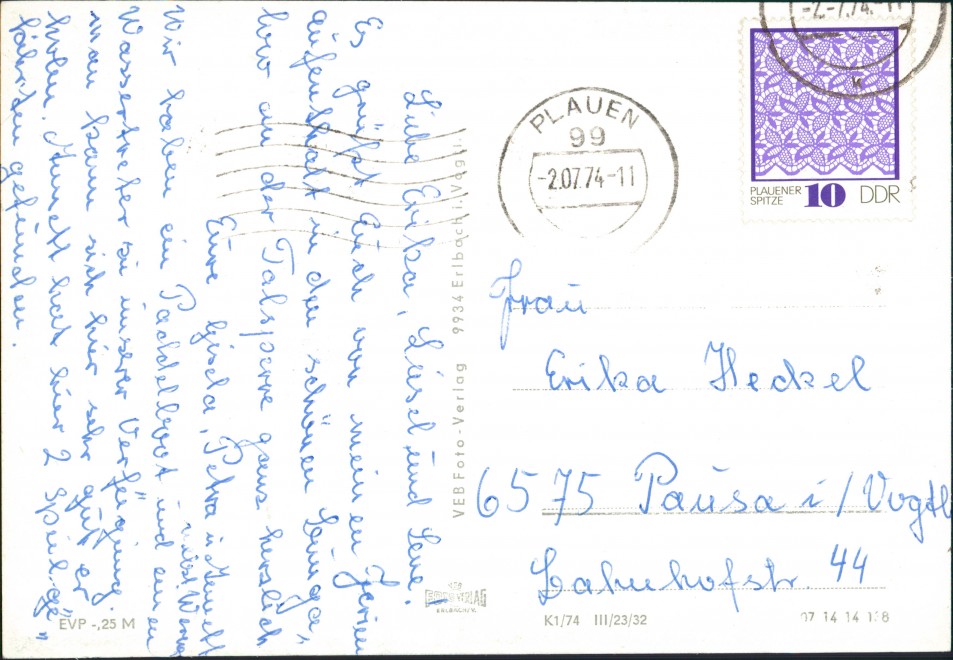 Liebe Erika, Liesel und Lene!
Es grüßt Euch von meinem Ferien
aufenthalt in den schönen
hro an der Talsperre ganz herzlich
Eure Gisela, Petra u. Annett
nebst Werner
Wir haben ein Paddelboot und einen
Wassertreter zu unserer Verfügung.
man kann sich hier sehr gut er
holen. Annett hat hier 2 Spielge„
fährten gefunden.
VEB Foto-Verlag 9934 Erlbach i. Vogtl.
PLAUEN
99
-2.07.74-11
-2.-7.74.-11
k
PLAUENER
SPITZE 10 DDR
Frau
Erika Heckel
6575 Pausa i/Vogtl
Bahnhofstr. 44
EVP -,25 M
FOTO-VERLAG
ERLBACH/V.
K1/74 III/23/32
07 14 14 138